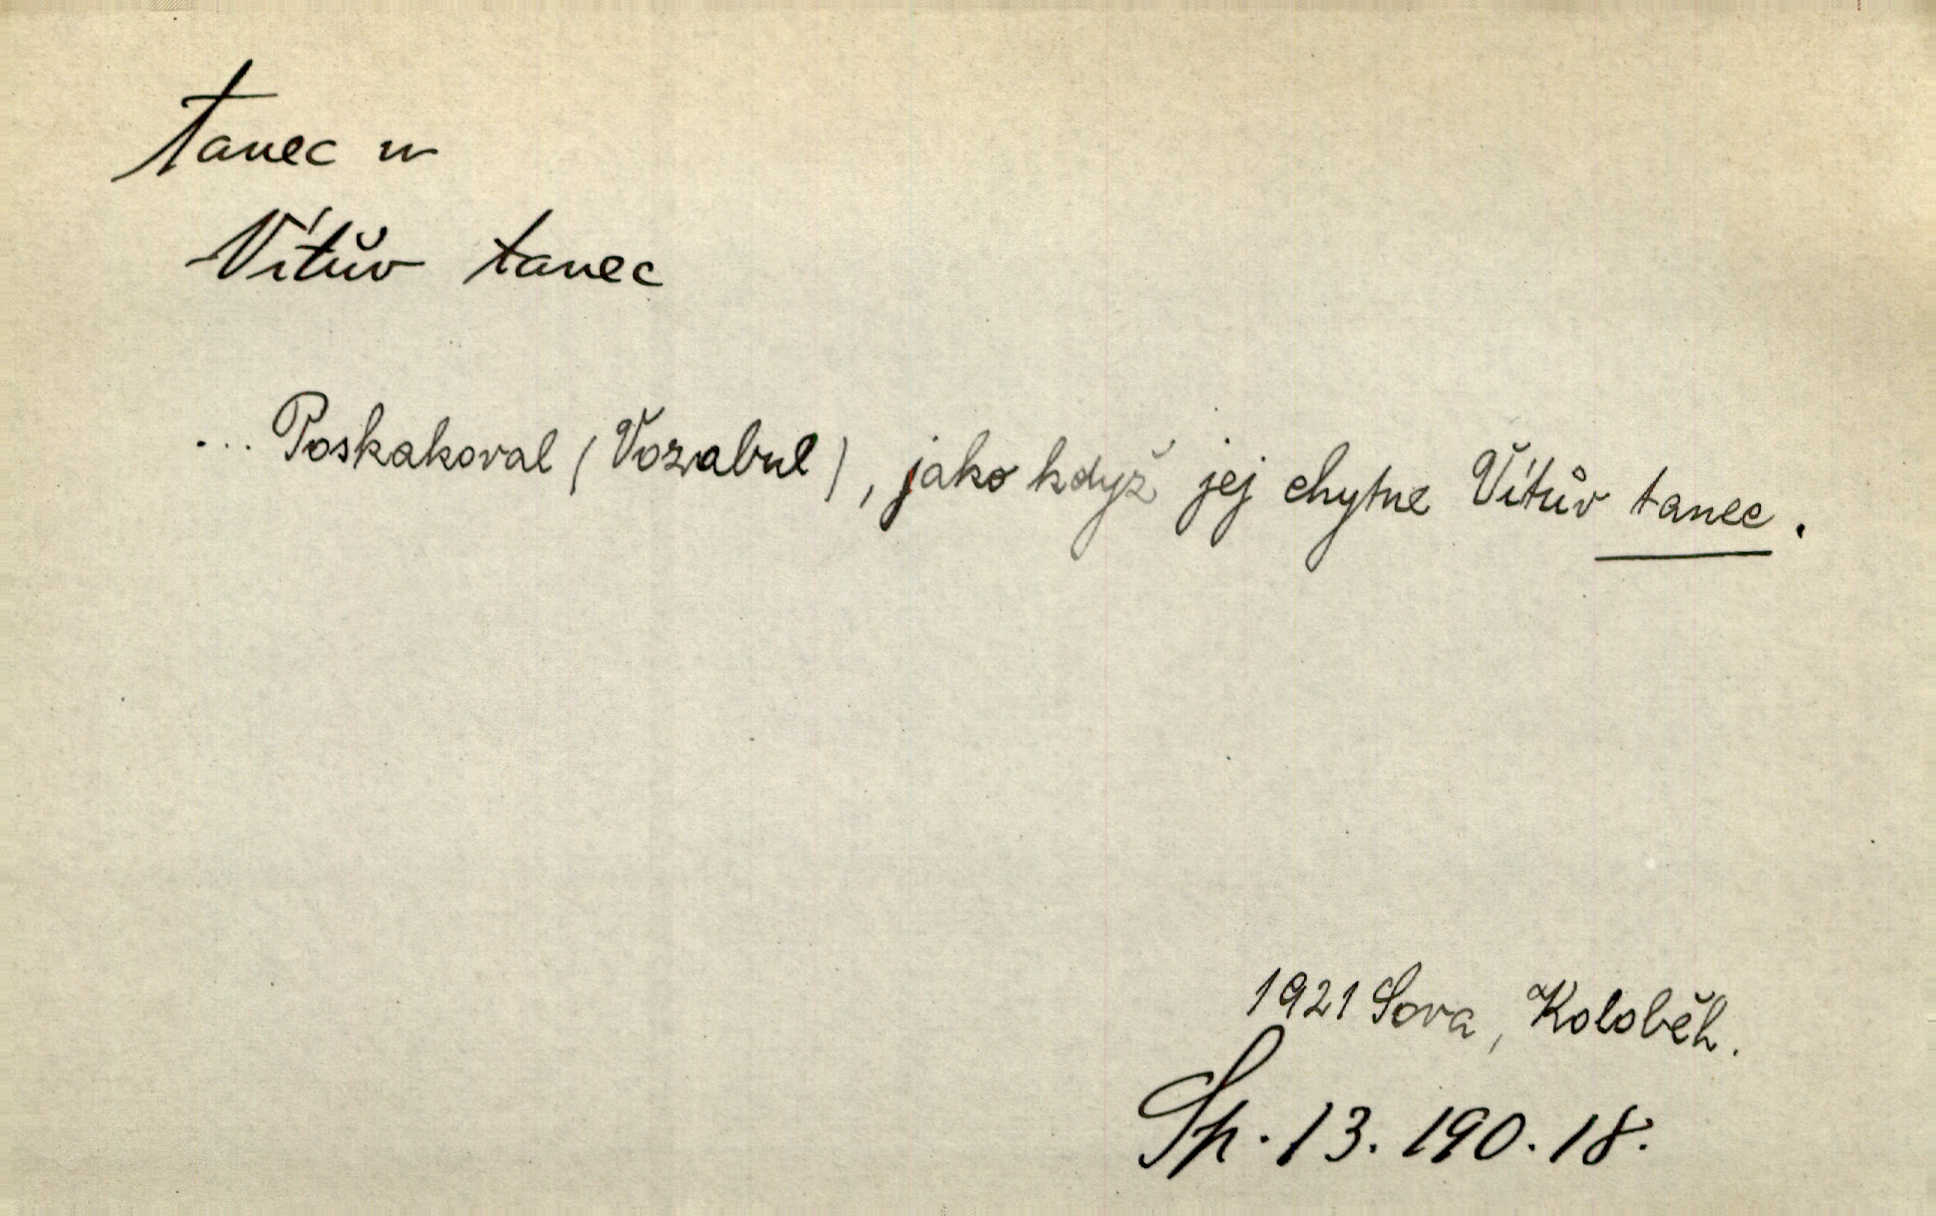 tanec m
Vítův tanec
... Poskakoval (Vozabul), jako když jej chytne Vítův tanec.
1921 Sova, Koloběh.
Sp. 13. 190. 18.